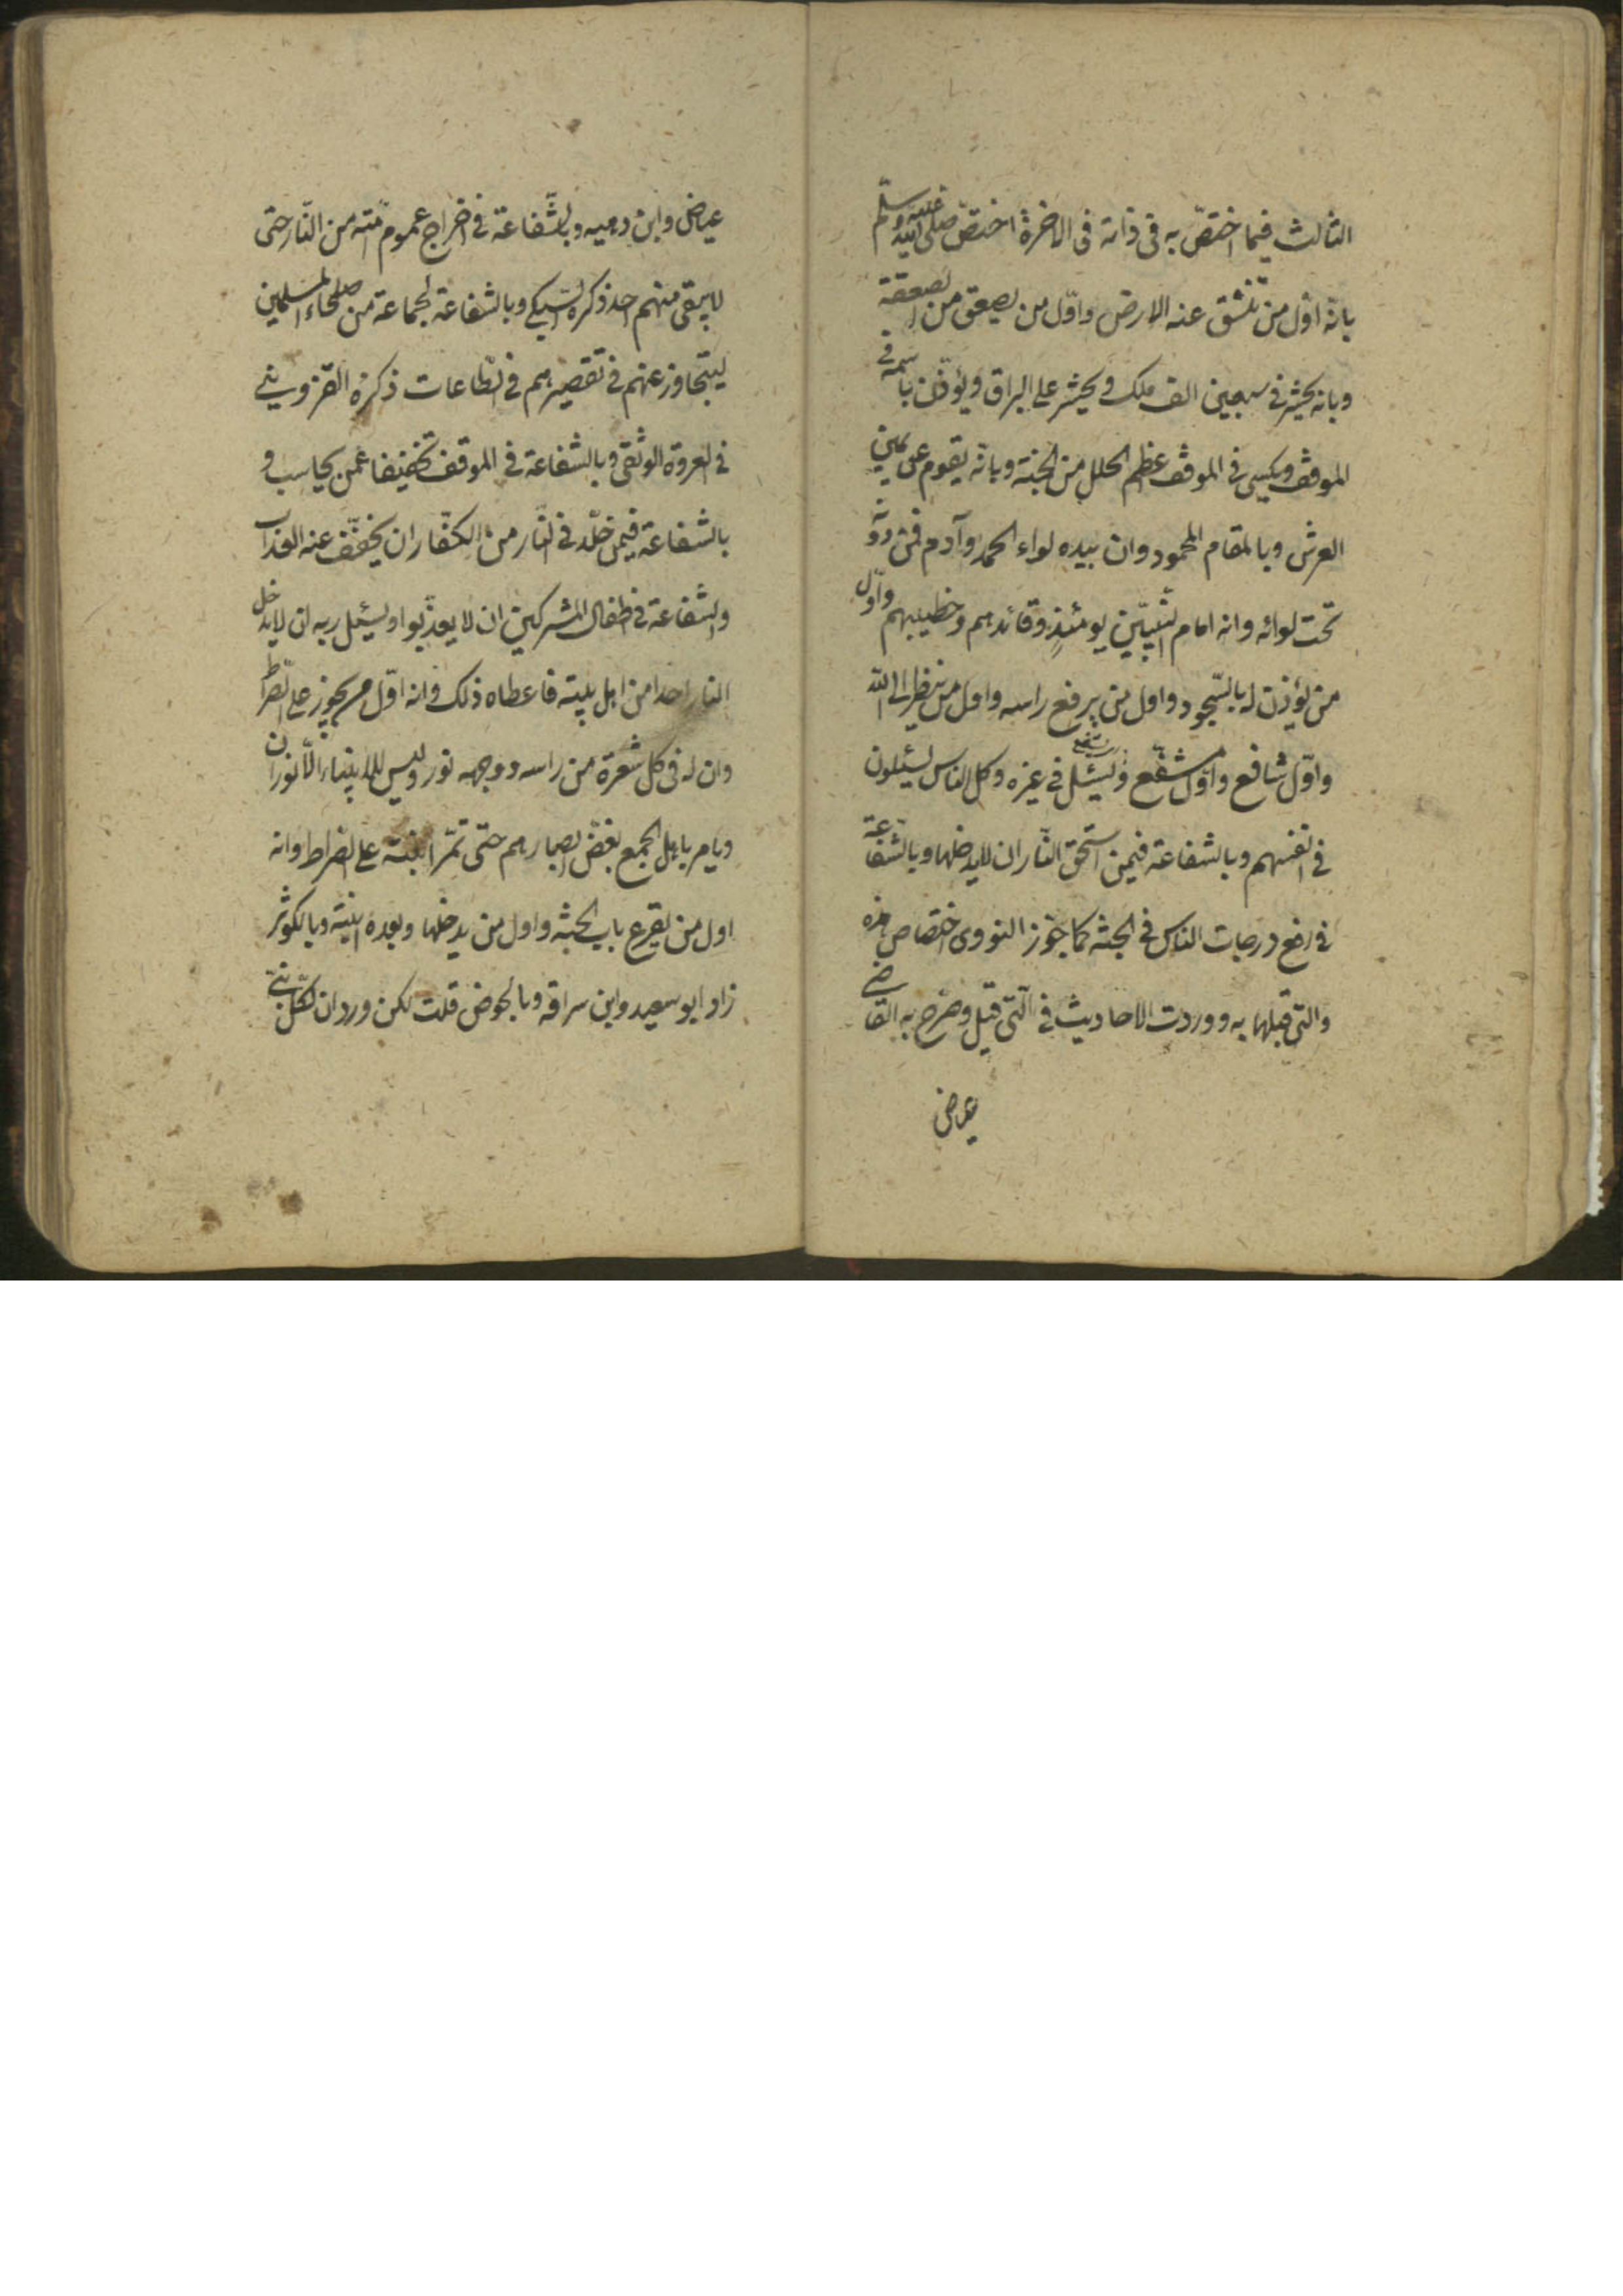 الثالث فيما اختصّ به فى ذاته فى الاخرة اختصّ صلى الله عليه وسلّم
بانه اوّل من تنشق عنه الارض واوّل من يصعق من الصعقة
وبانه يحشر فى سبعين الف ملك ويحشر على البراق ويؤذّن باسمه فى
الموقف ويكسى فى الموقف اعظم الحلل من الجنة وبانه يقوم عن يمين
العرش وبالمقام المحمود وان بيده لواء الحمد وآدم فمن دونه
تحت لوائه وانه امام النّبيّين يومئذٍ وقائدهم وخطيبهم واوّل
من يؤذن له بالسّجود واول من يرفع راسه واول من ينظر الى الله
واوّل شافع واوّل مشفّع ويسئل فى غيره وكل الناس يسئلون
فى انفسهم وبالشفاعة فيمن استحق النّار ان لا يدخلها وبالشفاعة
فى رفع درجات الناس فى الجنة كما جوّز النووى اختصاص هذه
والتى قبلها به ووردت الاحاديث فى الّتى قبل وصرّح به القاضى
عياض
عياض وابن دحيه وبالشّفاعة فى اخراج عموم امّته من النّار حتى
لا يبقى منهم احد ذكره السّبكى وبالشفاعة لجماعة من صلحاء المسلمين
ليتجاوز عنهم فى تقصيرهم فى الطّاعات ذكره القزوينى
فى العروة الوثقى وبالشفاعة فى الموقف تخفيفا عمّن يحاسب و
بالشفاعة فيمن خلّد فى النّار من الكفّار ان يخفّف عنه العذاب
والشفاعة فى اطفال المشركين ان لا يعذّبوا وسئل ربه ان لا يدخل
النار احدا من اهل بيته فاعطاه ذلك وانه اوّل من يجوز على الصّراط
وان له فى كل شعرة من راسه ووجهه نور وليس للانبياء الّا نوران
ويامر باهل الجمع بغضّ ابصارهم حتى تمرّ ابنته على الصراط وانه
اول من يقرع باب الجنة واول من يدخلها وبعده ابنته وبالكوثر
زاد ابو سعيد وابن سراقه وبالحوض قلت لكن ورد ان لكلّ نبىّ